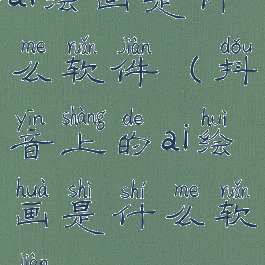 ai绘画是什
me ruǎn jiàn dǒu
么软件（抖
yīn shàng de huì
音上的ai绘
huà shì shí me ruǎn
画是什么软
jiàn